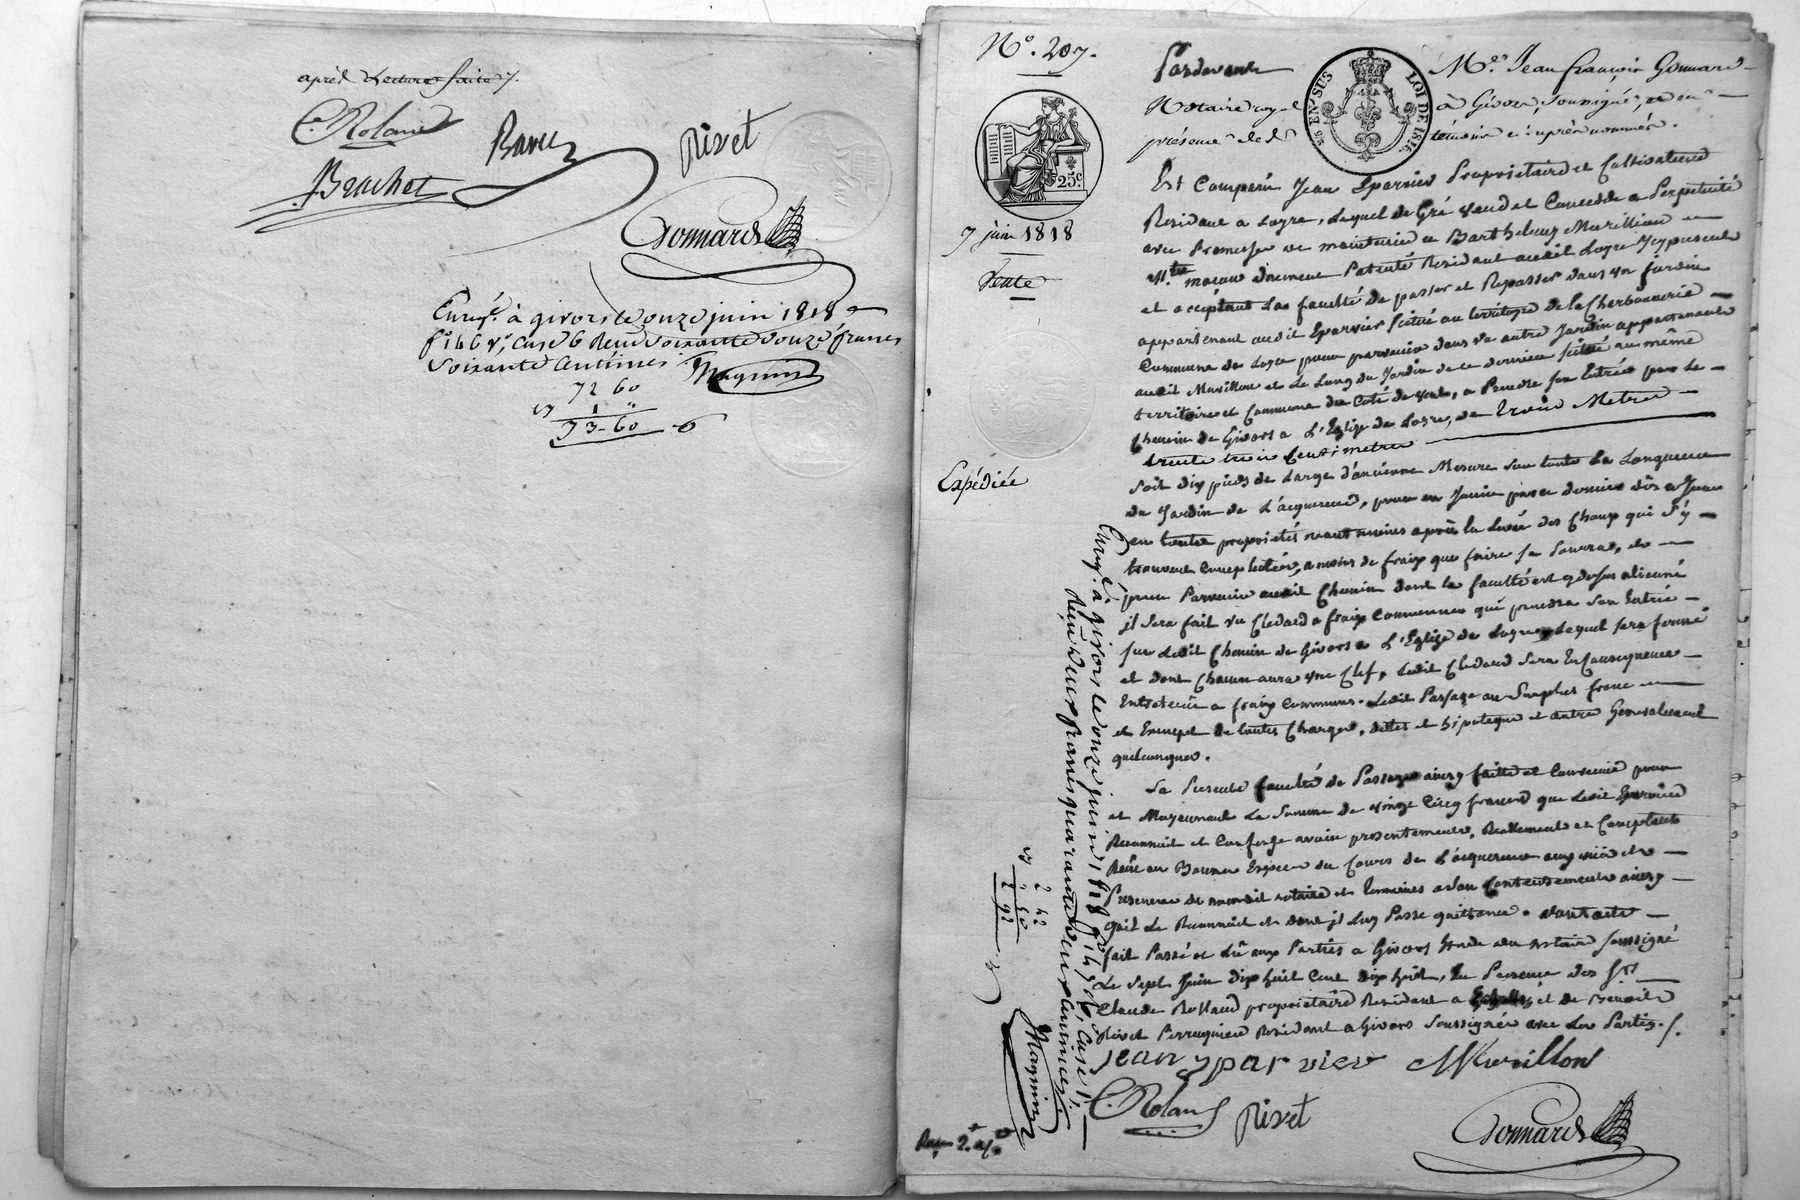 après Lecture faite ⁊.
C. Roland
Barut
Rivet
Brachet
Gonnard
Enreg.t à givors le onze juin 1818
f.o 146 v.o, Case 6 Reçu soixante douze francs
soixante Centimes Magnin
72 60
1 "
73 - 60
N.o 207.
Pardevant M.e Jean françois Gonnard
Notaire royal à Givors, soussigné, et en
présence des témoins ci après nommés.
25 EN SUS LOI DE 1816.
25.c
7 juin 1818
Vente
Expédiée
Est Comparu Jean Eparvier Propriétaire et Cultivateur
Résidant a Loyre, Lequel de Gré vend et Concedde a Perpétuité
avec Promesse de maintenir a Barthelemy Murillion
M.tre maçon duement Patenté Résidant audit Loyre Icy present
et acceptant La faculté de passer et Repasser dans un jardin
appartenant audit Eparvier Scitué au territoire de la Cherbonnerie
Commune de Loyre pour parvenir dans un autre Jardin appartenant
audit Murillon et Le Long du Jardin de ce dernier scitué au même
territoire et Commune du Coté de , a Prendre son Entrée par Le
Chemin de Givors a L'Eglise de Loire, de trois Metres
trente trois Centimetres
soit dix pieds de Large d'ancienne Mesure sur toute la Longueur
du Jardin de L'acquereur, pour en Jouir par ce dernier dès a Jour
en toute propriétés neant moins après la Levée des Champ qui s'y
trouvent Complettés, a moins de fraix que faire se pourra, et
pour Parvenir audit Chemin dont la faculté est cydessus aliené
il sera fait un Cledard a fraix Communs qui prendra son Entrée
sur Ledit Chemin de Givors a L'Eglise de Loyre Lequel sera fermé
et dont Chacun aura une Clef, Ledit Cledard sera En Conséquence
Entretenu a fraix Communs. Ledit Passage au Surplus franc
et Exempt de toutes Charges, dettes et hipoteque et autre Généralement
quelconques.
La Presente faculté de Passage ainsy faitte et Convenue pour
et Moyennant La Somme de vingt Cinq francs que Ledit Eparvier
Reconnait et Confesse avoir presentement, Reellement et Comptant
Reçu en Bonnes Especes du Cours de L'acquereur aux vüe et
Presence de moudit notaire et temoins a son Contentement ainsy
qu'il Le Reconnait et dont il Luy Passe quittance. dont acte
fait Passé et Lû aux Parties a Givors Etude du notaire soussigné
Le Sept Juin dix huit Cent dix huit, En Presence des S.rs
Claude Rolland propriétaire Résidant a et de Benoit
Rivet Perruquier Résidant a Givors Soussignés avec Les Parties. /.
jean yparvier Murillon
C. Roland Rivet
Gonnard
Enreg.t à givors le onze juin 1818 f.o 147 , Case 1,
Reçu deux francs quarante deux Centimes
2 42
" 50
2 92
Magnin